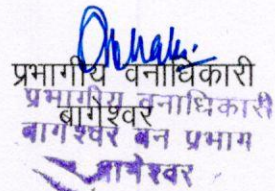 प्रभागीय वनाधिकारी
बागेश्वर
प्रभागीय वनाधिकारी
बागेश्वर वन प्रभाग
बागेश्वर